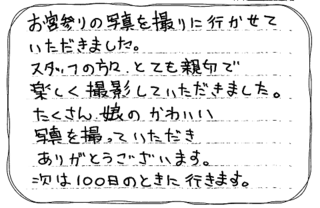 お宮参りの写真を撮りに行かせて
いただきました。
スタッフの方々 とても親切で
楽しく撮影していただきました。
たくさん 娘のかわいい
写真を撮っていただき
ありがとうございます。
次は100日のときに行きます。